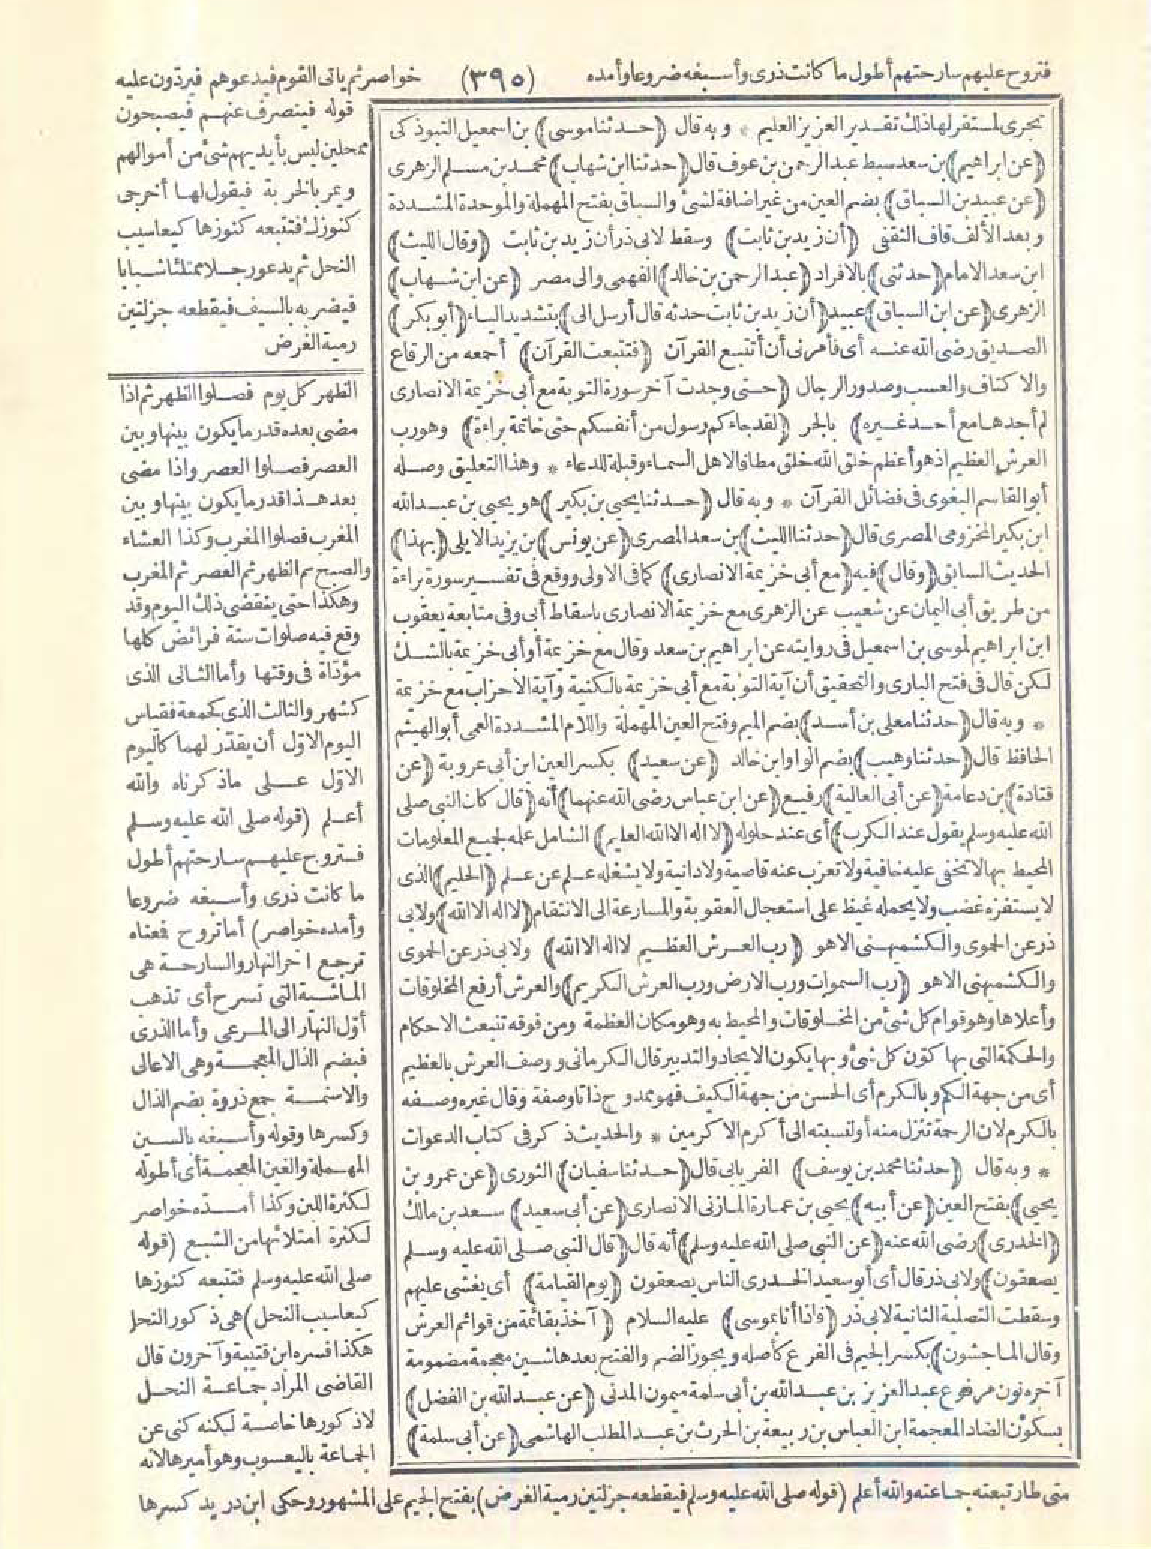 فتروح عليهم سارحتهم أطول ما كانت ذرى وأسبغه ضروعا وأمده (٣٩٥) خواصر ثم يأتى القوم فيدعوهم فيردّون عليه
قوله فينصرف عنهم فيصبحون
ممحلين ليس بأيديهم شئ من أموالهم
ويمر بالخربة فيقول لها أخرجى
كنوزك فتتبعه كنوزها كيعاسيب
النحل ثم يدعو رجلا ممتلئا شبابا
فيضربه بالسيف فيقطعه جزلتين
رمية الغرض
تجرى لمستقر لها ذلك تقدير العزيز العليم * وبه قال (حدثنا موسى) بن اسمعيل التبوذكى
(عن ابراهيم) بن سعد سبط عبد الرحمن بن عوف قال (حدثنا ابن شهاب) محمد بن مسلم الزهرى
(عن عبيد بن السباق) بضم العين من غير اضافة لشئ والسباق بفتح المهملة والموحدة المشددة
وبعد الألف قاف الثقفى (أن زيد بن ثابت) وسقط لابى ذر أن زيد بن ثابت (وقال الليث)
ابن سعد الامام (حدثنى) بالافراد (عبد الرحمن بن خالد) الفهمى والى مصر (عن ابن شهاب)
الزهرى (عن ابن السباق) عبيد (أن زيد بن ثابت حدثه قال أرسل الى) بتشديد الياء (أبو بكر)
الصديق رضى الله عنه أى فأمرنى أن أتتبع القرآن (فتتبعت القرآن) أجمعه من الرقاع
والاكتاف والعسب وصدور الرجال (حتى وجدت آخر سورة التوبة مع أبى خزيمة الانصارى
لم أجدها مع أحد غيره) بالجر (لقد جاءكم رسول من أنفسكم حتى خاتمة براءة) وهو رب
العرش العظيم اذ هو أعظم خلق الله خلق مطافا لاهل السماء وقبلة للدعاء * وهذا التعليق وصله
أبو القاسم البغوى فى فضائل القرآن * وبه قال (حدثنا يحيى بن بكير) هو يحيى بن عبد الله
ابن بكير المخزومى المصرى قال (حدثنا الليث) بن سعد المصرى (عن يونس) بن يزيد الايلى (بهذا)
الحديث السابق (وقال) فيه (مع أبى خزيمة الانصارى) كما فى الاولى ووقع فى تفسير سورة براءة
من طريق أبى اليمان عن شعيب عن الزهرى مع خزيمة الانصارى باسقاط أبى وفى متابعة يعقوب
ابن ابراهيم لموسى بن اسمعيل فى روايته عن ابراهيم بن سعد وقال مع خزيمة أو أبى خزيمة بالشك
لكن قال فى فتح البارى والتحقيق أن آية التوبة مع أبى خزيمة بالكنية وآية الاحزاب مع خزيمة
* وبه قال (حدثنا معلى بن أسد) بضم الميم وفتح العين المهملة واللام المشددة العمى أبو الهيثم
الحافظ قال (حدثنا وهيب) بضم الواو ابن خالد (عن سعيد) بكسر العين ابن أبى عروبة (عن
قتادة) بن دعامة (عن أبى العالية) رفيع (عن ابن عباس رضى الله عنهما) أنه (قال كان النبى صلى
الله عليه وسلم يقول عند الكرب) أى عند حلوله (لا اله الا الله العليم) الشامل علمه لجميع المعلومات
المحيط بها لا تخفى عليه خافية ولا تعزب عنه قاصية ولا دانية ولا يشغله علم عن علم (الحليم) الذى
لا يستفزه غضب ولا يحمله غيظ على استعجال العقوبة والمسارعة الى الانتقام (لا اله الا الله) ولابى
ذر عن الحموى والكشميهنى الا هو (رب العرش العظيم لا اله الا الله) ولابى ذر عن الحموى
والكشميهنى الا هو (رب السموات ورب الارض ورب العرش الكريم) والعرش أرفع المخلوقات
وأعلاها وهو قوام كل شئ من المخلوقات والمحيط به وهو مكان العظمة ومن فوقه تنبعث الاحكام
والحكمة التى بها كوّن كل شئ وبها يكون الايجاد والتدبير قال الكرمانى ووصف العرش بالعظيم
أى من جهة الكم وبالكرم أى الحسن من جهة الكيف فهو ممدوح ذاتا وصفة وقال غيره وصفه
بالكرم لان الرحمة تنزل منه أو لنسبته الى أكرم الاكرمين * والحديث ذكر فى كتاب الدعوات
* وبه قال (حدثنا محمد بن يوسف) الفريابى قال (حدثنا سفيان) الثورى (عن عمرو بن
يحيى) بفتح العين (عن أبيه) يحيى بن عمارة المازنى الانصارى (عن أبى سعيد) سعد بن مالك
(الخدرى) رضى الله عنه (عن النبى صلى الله عليه وسلم) أنه قال (قال النبى صلى الله عليه وسلم
يصعقون) ولابى ذر قال أى أبو سعيد الخدرى الناس يصعقون (يوم القيامة) أى يغشى عليهم
وسقطت التصلية الثانية لابى ذر (فاذا أنا بموسى) عليه السلام (آخذ بقائمة من قوائم العرش
وقال الماجشون) بكسر الجيم فى الفرع كأصله ويجوز الضم والفتح بعدها شين معجمة مضمومة
آخره نون مرفوع عبد العزيز بن عبد الله بن أبى سلمة ميمون المدنى (عن عبد الله بن الفضل)
بسكون الضاد المعجمة ابن العباس بن ربيعة بن الحرث بن عبد المطلب الهاشمى (عن أبى سلمة)
الظهر كل يوم فصلوا الظهر ثم اذا
مضى بعده قدر ما يكون بينها وبين
العصر فصلوا العصر واذا مضى
بعد هذا قدر ما يكون بينها وبين
المغرب فصلوا المغرب وكذا العشاء
والصبح ثم الظهر ثم العصر ثم المغرب
وهكذا حتى ينقضى ذلك اليوم وقد
وقع فيه صلوات سنة فرائض كلها
مؤداة فى وقتها وأما الثانى الذى
كشهر والثالث الذى كجمعة فقياس
اليوم الاوّل أن يقدّر لهما كاليوم
الاوّل على ما ذكرناه والله
أعلم (قوله صلى الله عليه وسلم
فتروح عليهم سارحتهم أطول
ما كانت ذرى وأسبغه ضروعا
وأمده خواصر) أما تروح فمعناه
ترجع آخر النهار والسارحة هى
الماشية التى تسرح أى تذهب
أوّل النهار الى المرعى وأما الذرى
فبضم الذال المعجمة وهى الاعالى
والاسنمة جمع ذروة بضم الذال
وكسرها وقوله وأسبغه بالسين
المهملة والغين المعجمة أى أطوله
لكثرة اللبن وكذا أمدّه خواصر
لكثرة امتلائها من الشبع (قوله
صلى الله عليه وسلم فتتبعه كنوزها
كيعاسيب النحل) هى ذكور النحل
هكذا فسره ابن قتيبة وآخرون قال
القاضى المراد جماعة النحل
لا ذكورها خاصة لكنه كنى عن
الجماعة باليعسوب وهو أميرها لانه
متى طار تبعته جماعته والله أعلم (قوله صلى الله عليه وسلم فيقطعه جزلتين رمية الغرض) بفتح الجيم على المشهور وحكى ابن دريد كسرها